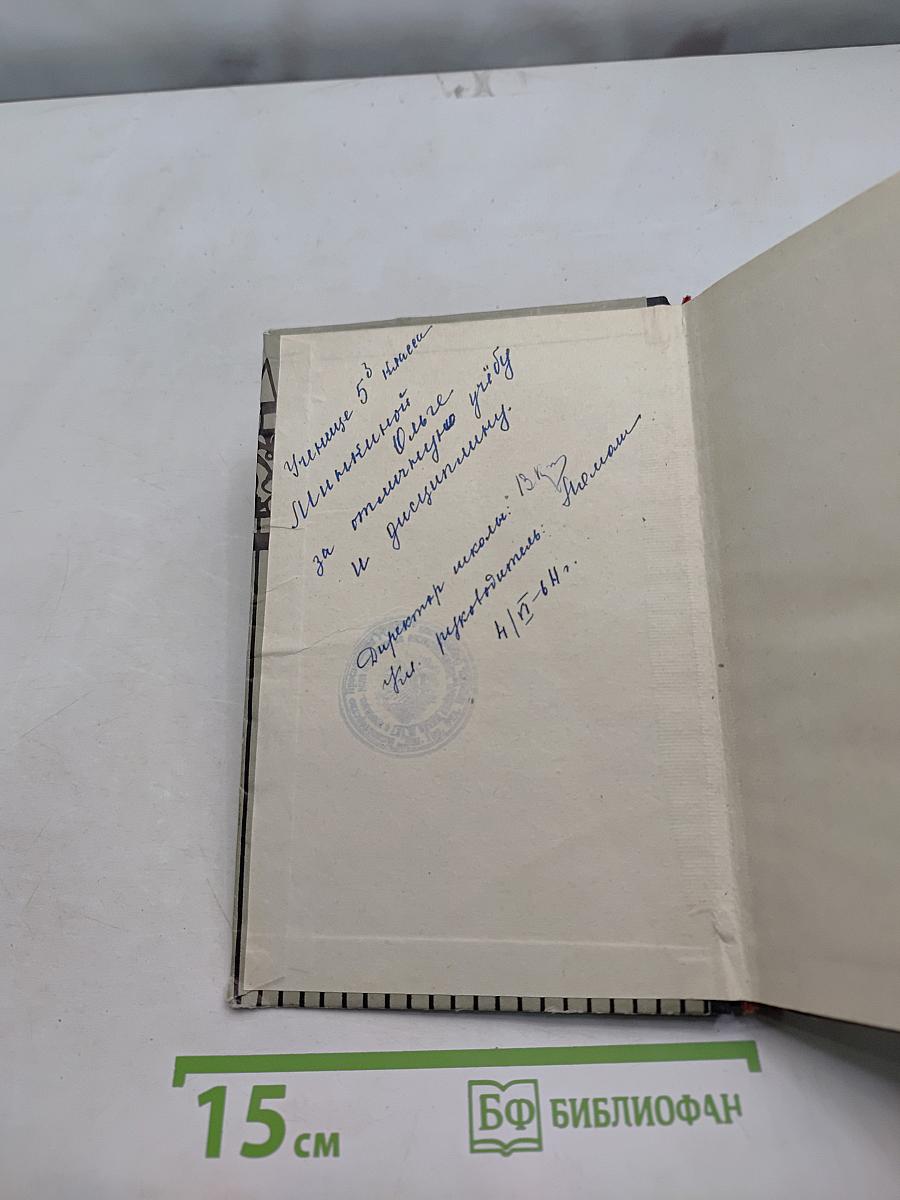 Ученице 5³ класса
Минкиной
Ольге
за отличную учёбу
и дисциплину.
Директор школы:
Кл. руководитель:
4/VI-64 г.
15 см
БФ БИБЛИОФАН